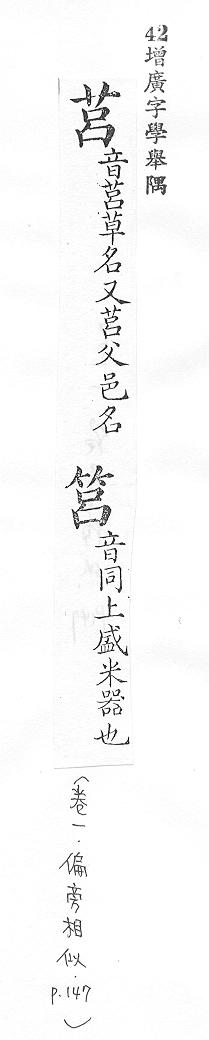 42增廣字學舉隅
莒音莒草名又莒父邑名 筥音同上盛米器也
(卷一.偏旁相似.p.147)